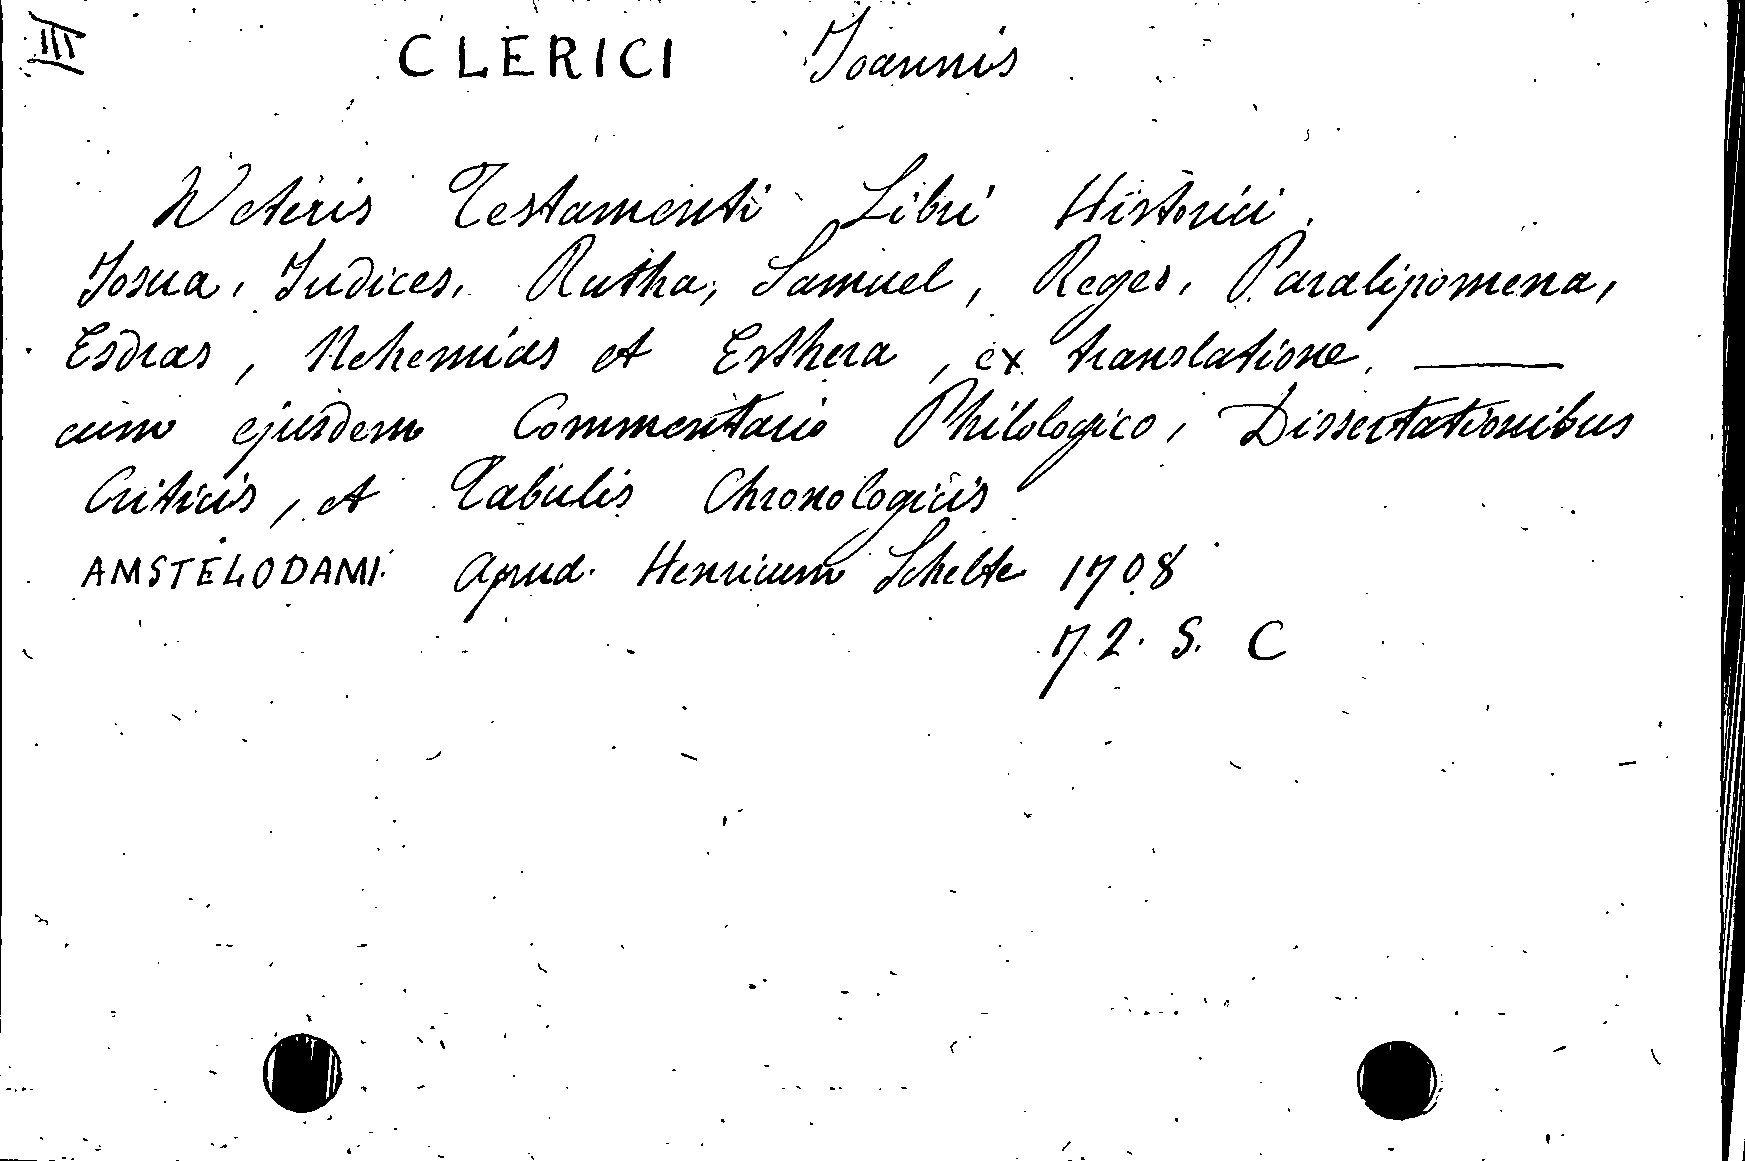 III
CLERICI Joannis
Veteris Testamenti Libri Historici.
Josua, Judices, Rutha, Samuel, Reges, Paralipomena,
Esdras, Nehemias et Esthera, ex translatione. ——
cum ejusdem Commentario Philologico, Dissertationibus
Criticis, et Tabulis Chronologicis
AMSTELODAMI. apud. Henricum Schelte 1708
72. S. C